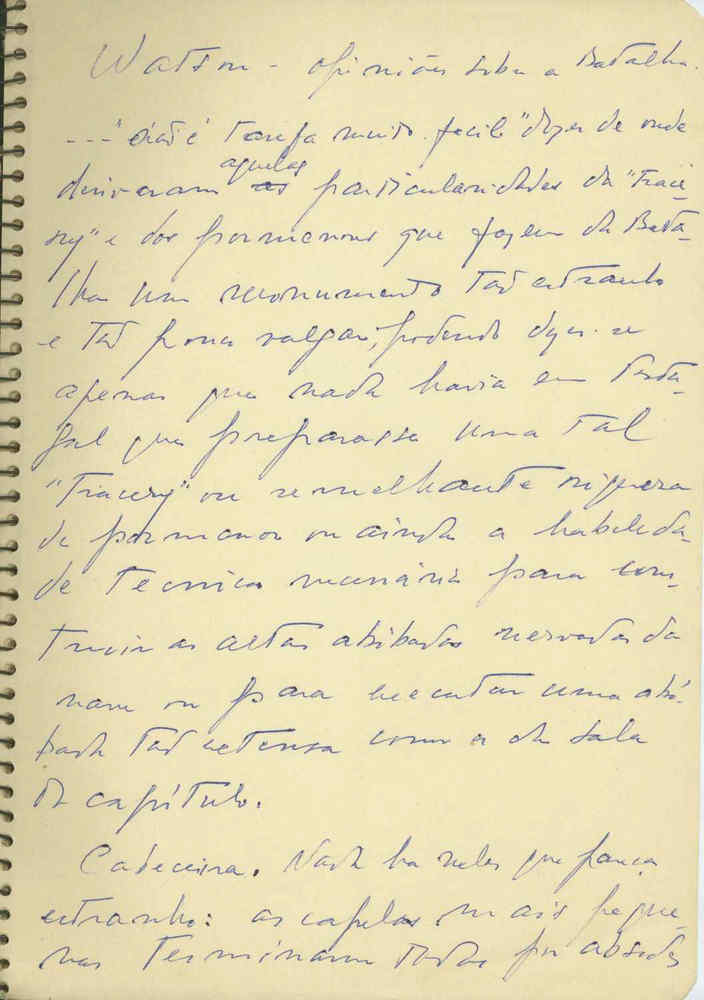 Watson - opiniões sobre a Batalha.
---"não é tarefa muito facil" dizer de onde
derivaram aquelas as particularidades da "Trace-
ry" e dos pormenores que fazem da Bata-
lha um monumento tão estranho
e tão pouco vulgar; podendo dizer-se
apenas que nada havia em Portu-
gal que preparasse uma tal
"Tracery" ou semelhante riqueza
de pormenor ou ainda a habilida-
de tecnica necessária para cons-
truir as altas abóbadas nervadas da
nave ou para executar uma abó-
bada tão extensa como a da sala
do capítulo.
Cabeceira. Nada ha nelas que pareça
estranho: as capelas mais peque-
nas terminam todas por absides